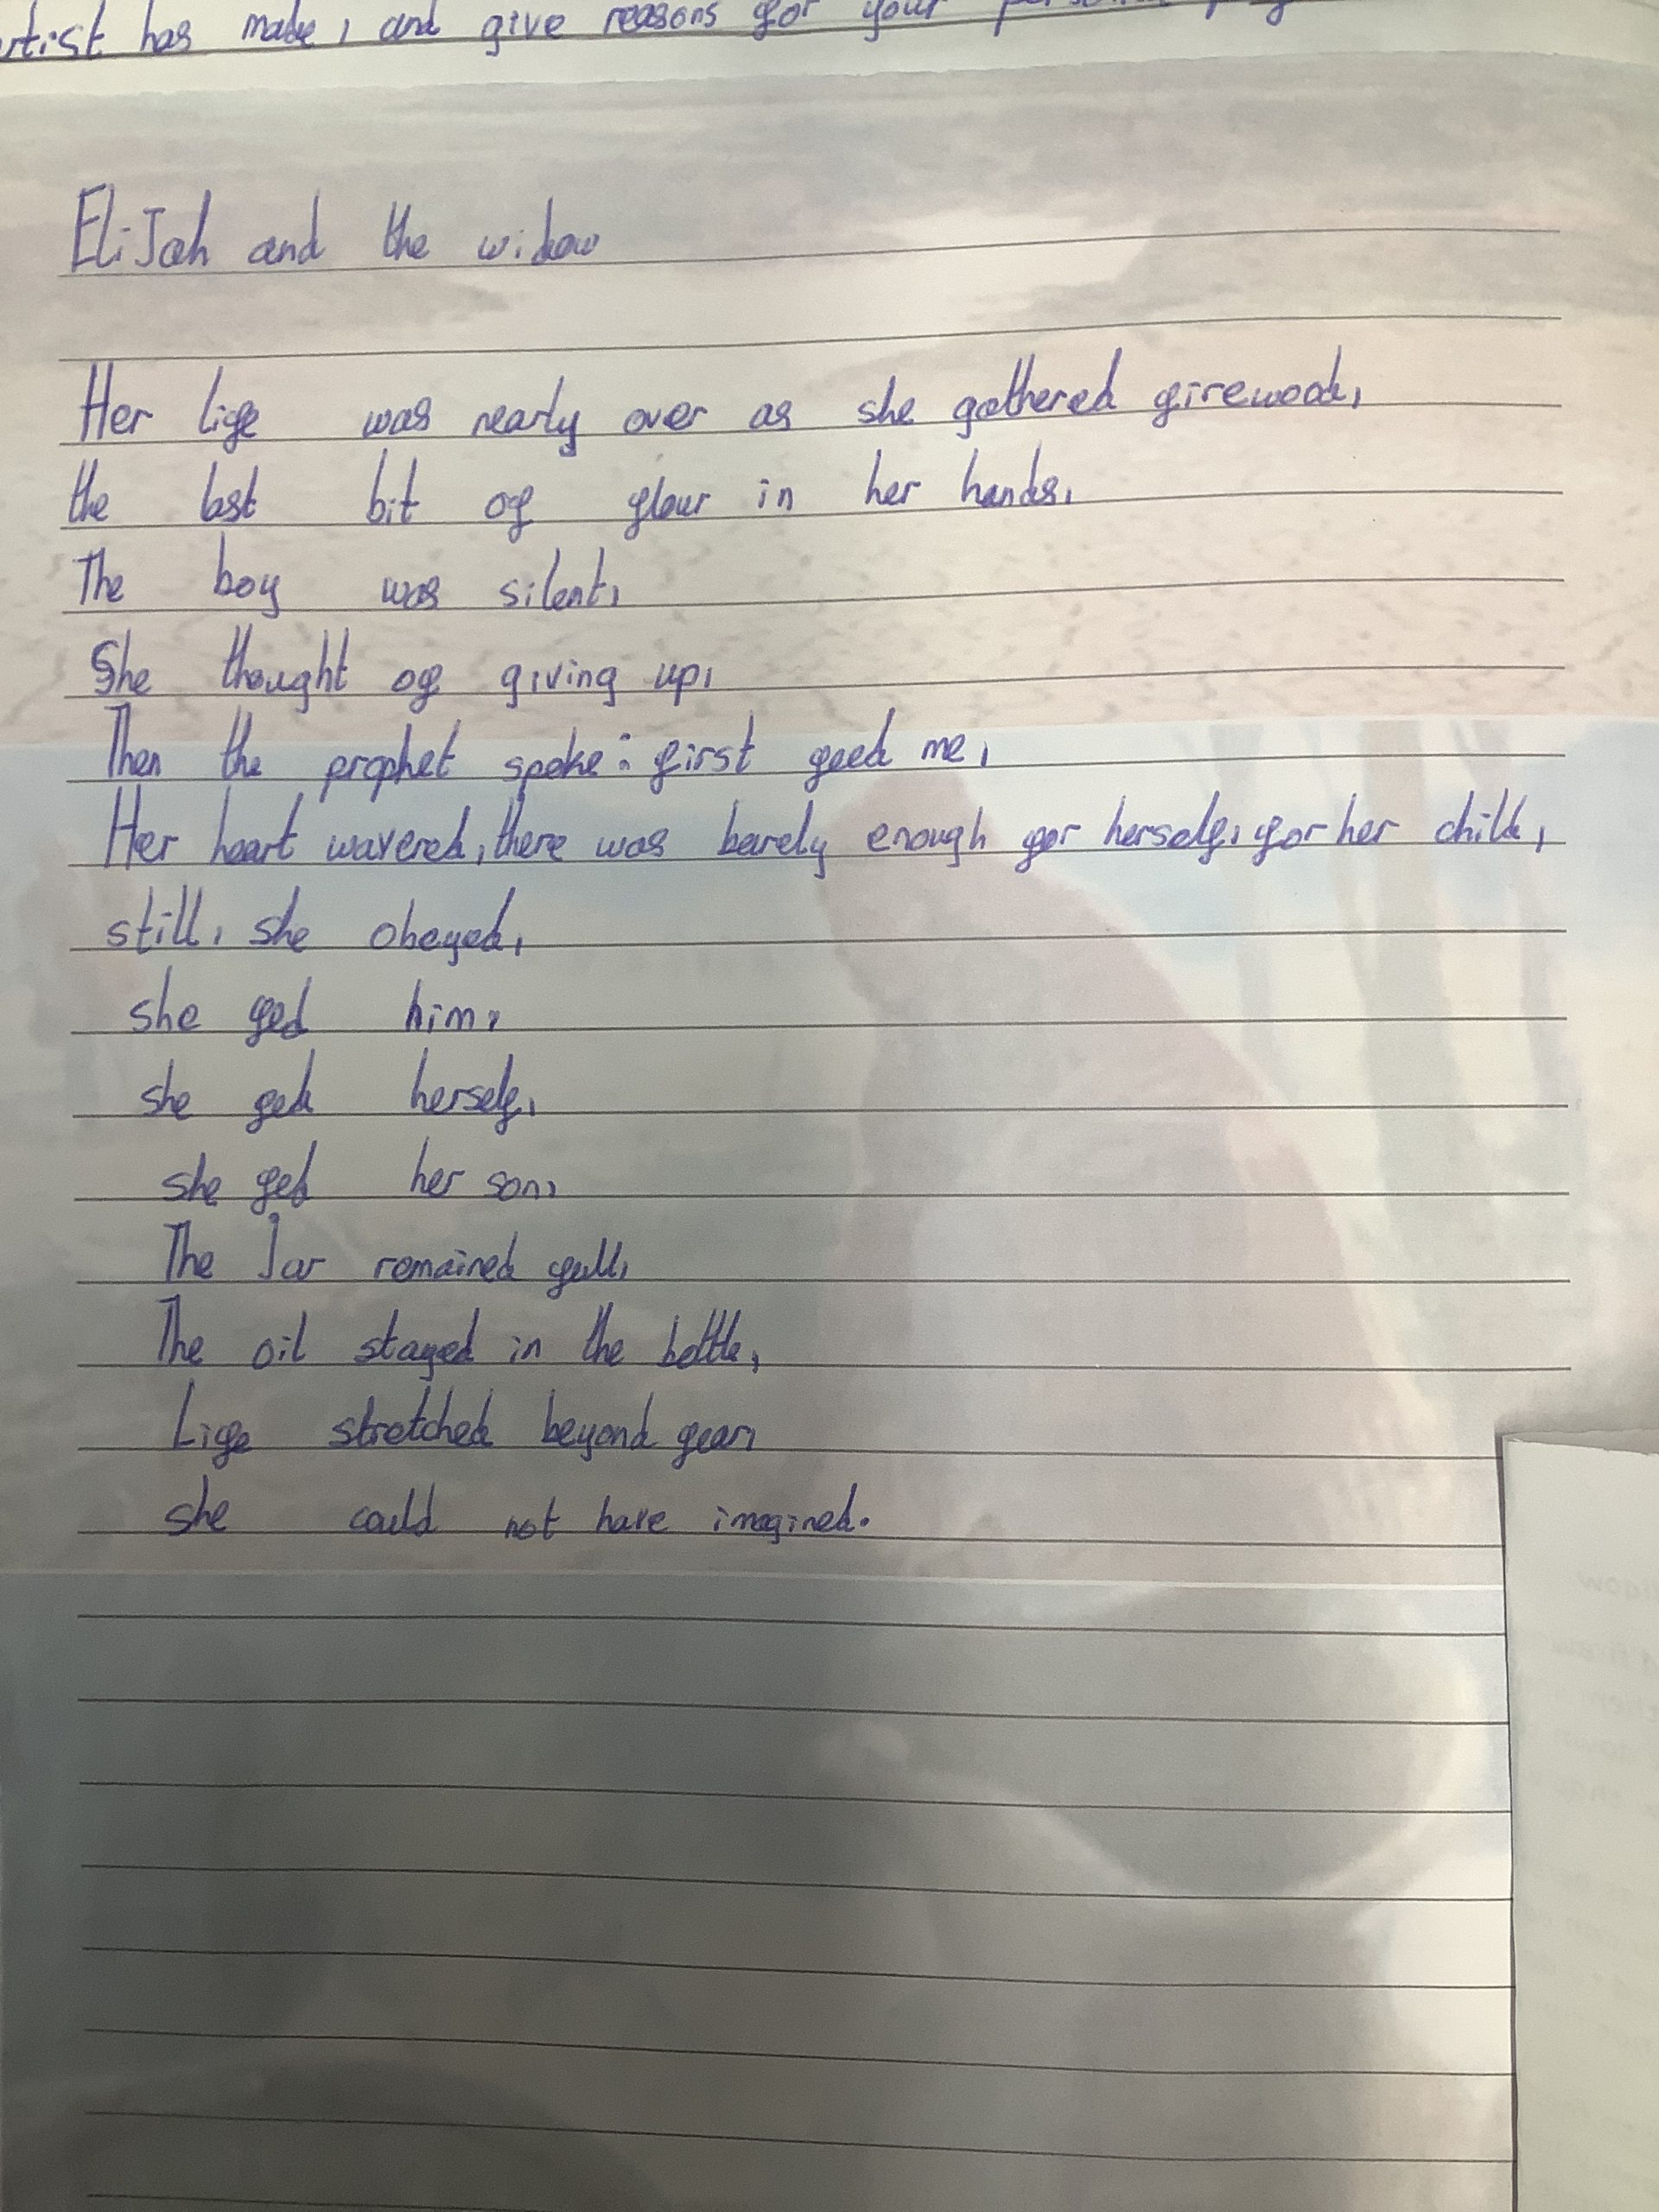 artist has made, and give reasons for your
Elijah and the widow
Her life was nearly over as she gathered firewood,
the last bit of flour in her hands,
The boy was silent,
She thought of giving up,
Then the prophet spoke: first feed me,
Her heart wavered, there was barely enough for herself, for her child,
still, she obeyed,
she fed him,
she fed herself,
she fed her son,
The Jar remained full,
The oil stayed in the bottle,
Life stretched beyond fear,
she could not have imagined.